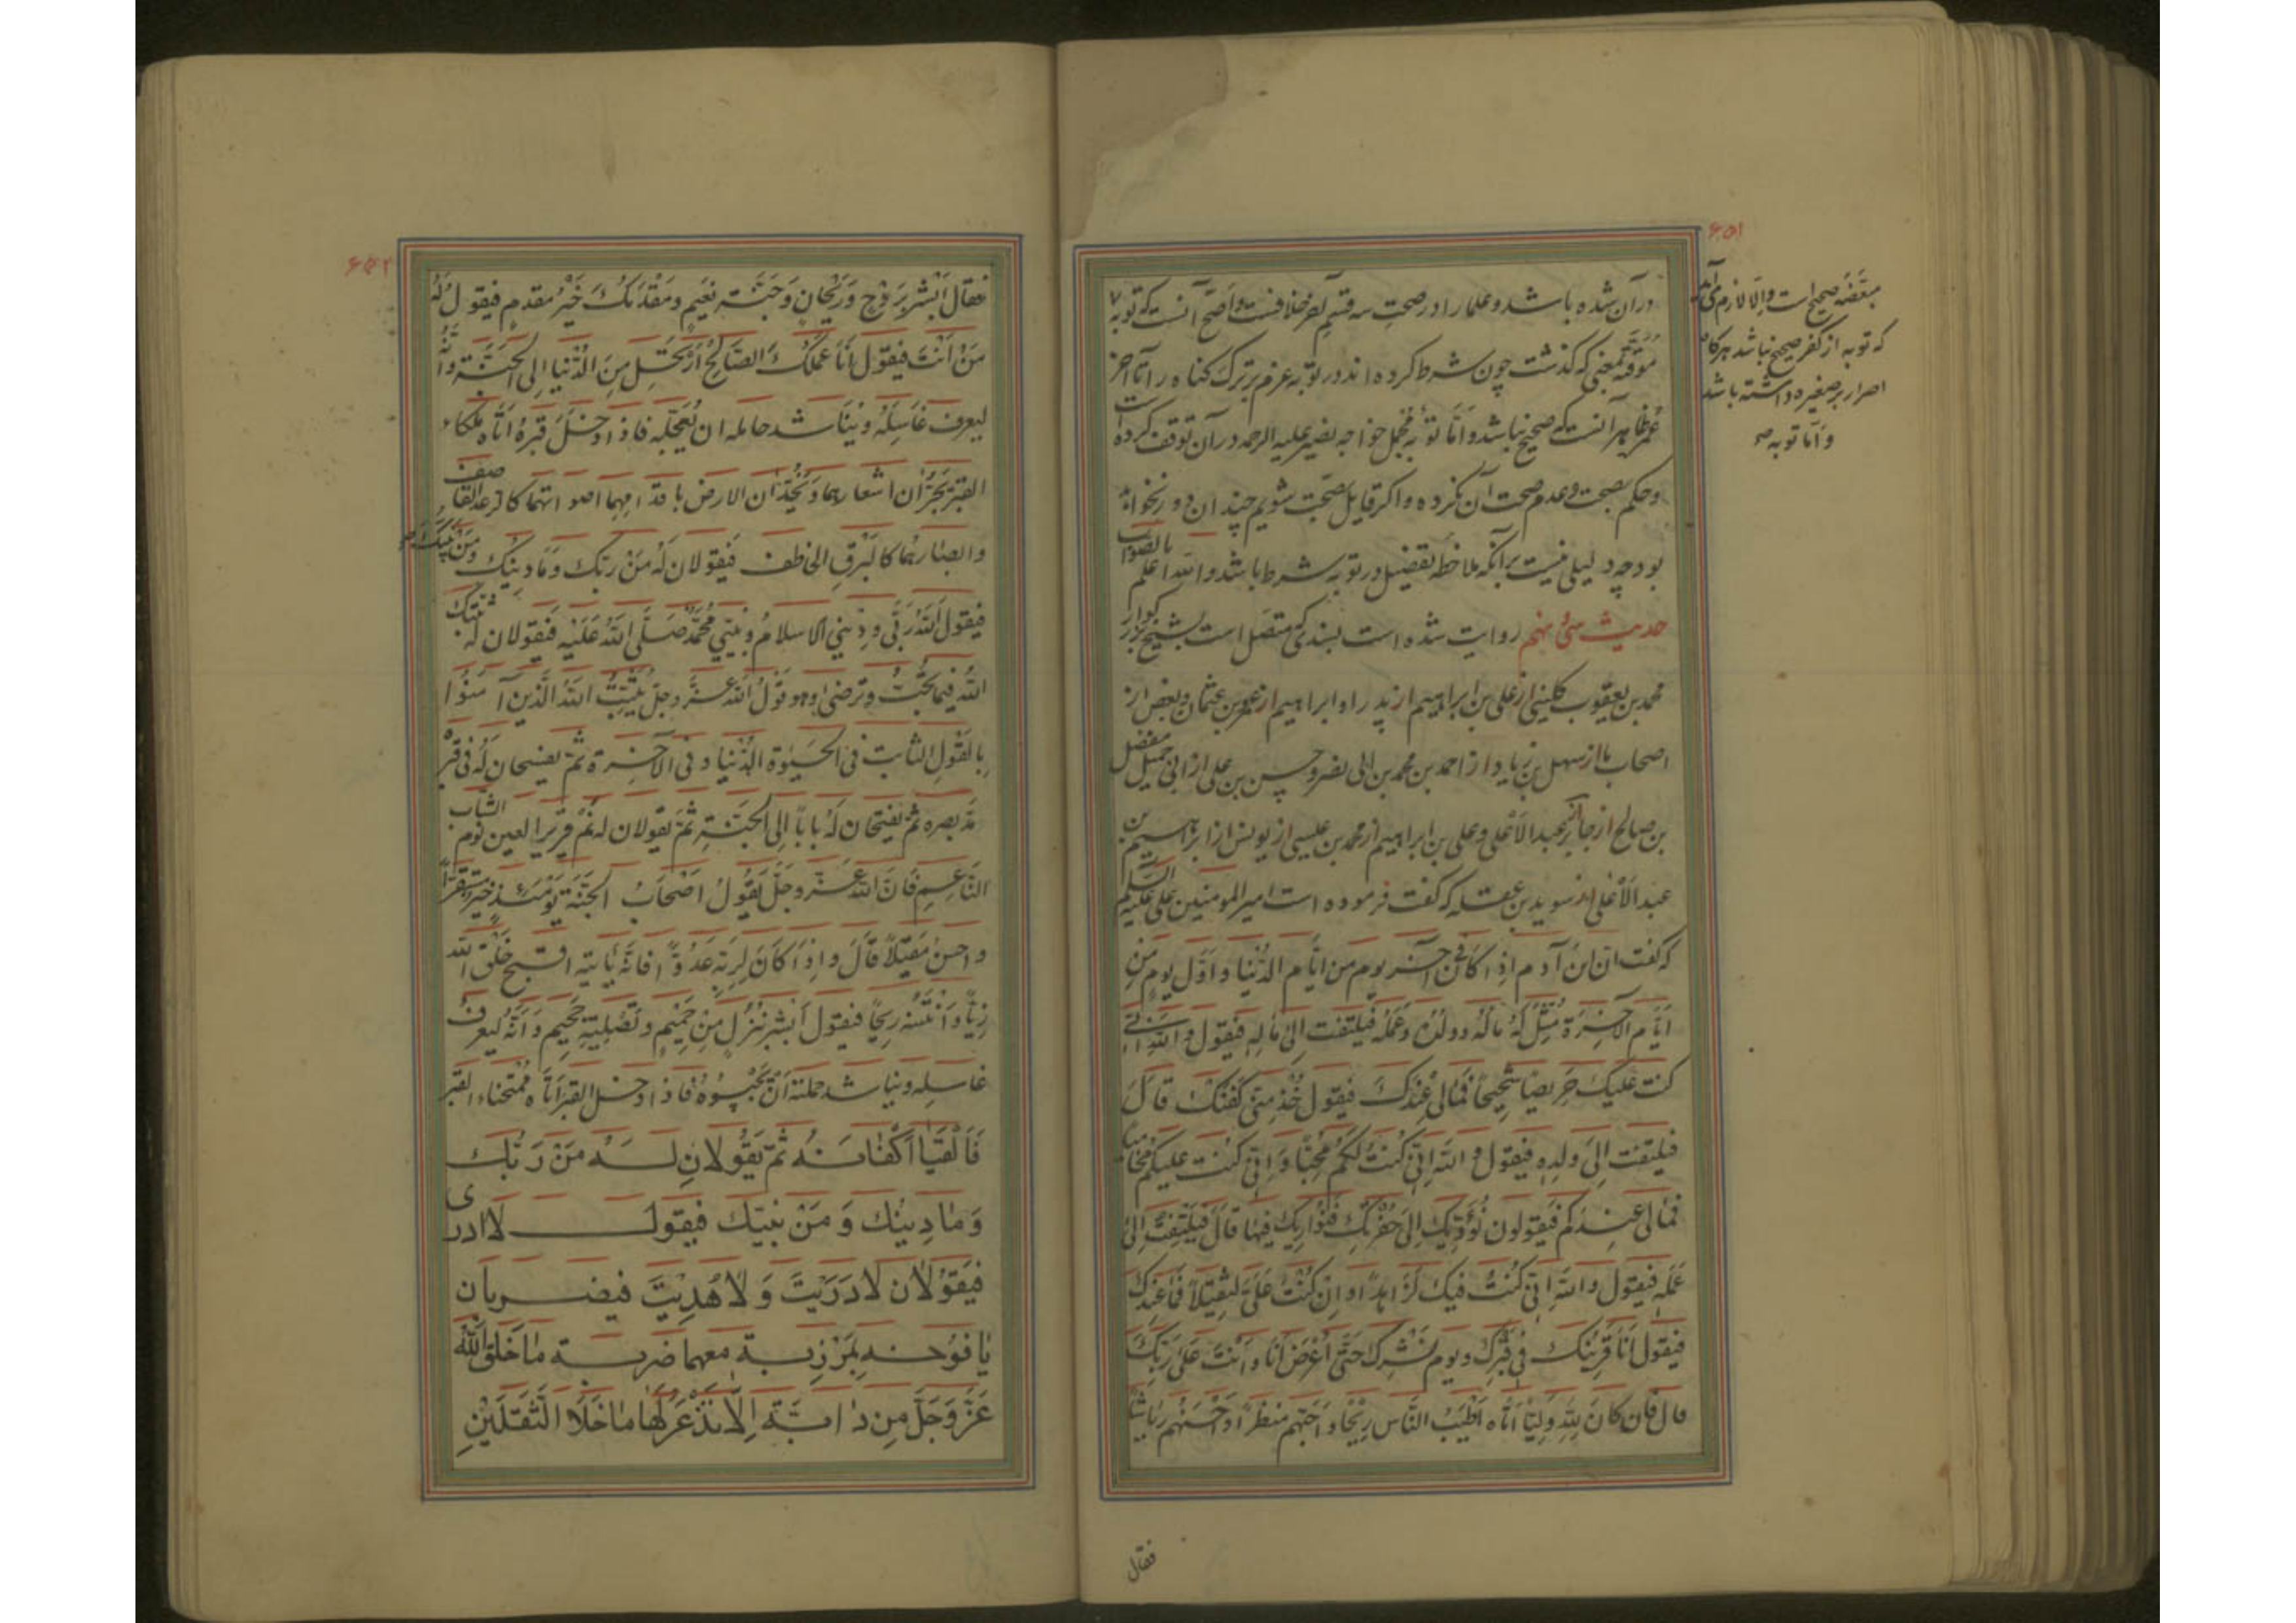 ۶۵۱
درآن شده باشد و علما را در صحت سه قسم آخر خلافست و اصح آنست که توبه
موقته بمعنی که گذشت چون شرط کرده اند در توبه عزم بر ترک گناه را تا آخر
عمر ظاهر آنست که صحیح نباشد و اما توبهٔ مجمل خواجه نصیر علیه الرحمه در آن توقف کرده است
و حکم بصحت و عدم صحت آن نکرده و اگر قایل بصحت شویم چندان دور نخواهد
بود چه دلیلی نیست برآنکه ملاحظه تفصیل در توبه شرط باشد والله اعلم بالصواب
حدیث سی و نهم روایت شده است بسندی که متصل است بشیخ بزرگوار
محمد بن یعقوب کلینی از علی بن ابراهیم از پدر او ابراهیم از عمرو بن عثمان و بعض از
اصحاب ما از سهل بن زیاد از احمد بن محمد بن ابی نصر و حسن بن علی از ابی جمیل مفضل
بن صالح از جابر عبد الاعلی و علی بن ابراهیم از محمد بن عیسی از یونس از ابراهیم بن
عبد الاعلی از سوید بن غفله که گفت فرموده است امیر المومنین علی علیه السلام
که گفت ان ابن آدم اذا کان فی آخر یوم من ایام الدنیا و اول یوم من
ایام الآخرة مثل له ماله و ولده و عمله فیلتفت الی ماله فیقول والله انی
کنت علیک حریصا شحیحا فمالی عندک فیقول خذ منی کفنک قال
فیلتفت الی ولده فیقول والله انی کنت لکم محبا و انی کنت علیکم محامیا
فمالی عندکم فیقولون نؤدیک الی حفرتک فنواریک فیها قال فیلتفت الی
عمله فیقول والله انی کنت فیک لزاهدا و ان کنت علی لثقیلا فما عندک
فیقول انا قرینک فی قبرک و یوم نشرک حتی اعرض انا و انت علی ربک
قال فان کان لله ولیا اتاه اطیب الناس ریحا و احبهم منظرا و احسنهم ریاشا
فقال
مبعضه صحیح است و الا لازم می آید
که توبه از کفر صحیح نباشد هرگاه
اصرار بر صغیره داشته باشد
و اما توبه
۶۵۲
فقال ابشر بروح و ریحان و جنة نعیم و مقدمک خیر مقدم فیقول له
من انت فیقول انا عملک الصالح ارتحل من الدنیا الی الجنة و انه
لیعرف غاسله و یناشد حامله ان یعجله فاذا ادخل قبره اتاه ملکاء
القبر یجران اشعارهما و یخدان الارض باقدامهما اصواتهما کالرعد القاصف
و ابصارهما کالبرق الخاطف فیقولان له من ربک و ما دینک و من نبیک
فیقول الله ربی و دینی الاسلام و نبیی محمد صلی الله علیه فیقولان له ثبتک
الله فیما تحب و ترضی و هو قول الله عز وجل یثبت الله الذین آمنوا
بالقول الثابت فی الحیوة الدنیا و فی الآخرة ثم یفسحان له فی قبره
مد بصره ثم یفتحان له بابا الی الجنة ثم یقولان له نم قریر العین نوم الشاب
الناعم فان الله عز وجل یقول اصحاب الجنة یومئذ خیر مستقرا
و احسن مقیلا قال و اذا کان لربه عدوا فانه یأتیه اقبح خلق الله
زیا و انتنه ریحا فیقول ابشر بنزل من حمیم و تصلیة جحیم و انه لیعرف
غاسله و یناشد حملته ان یحبسوه فاذا ادخل القبر اتاه ممتحناء القبر
فالقیا اکفانه ثم یقولان له من ربک
و ما دینک و من نبیک فیقول لا ادری
فیقولان لا دریت و لا هدیت فیضربان
یافوخه بمرزبة معهما ضربة ما خلق الله
عز وجل من دابة الا تذعر لها ما خلا الثقلین